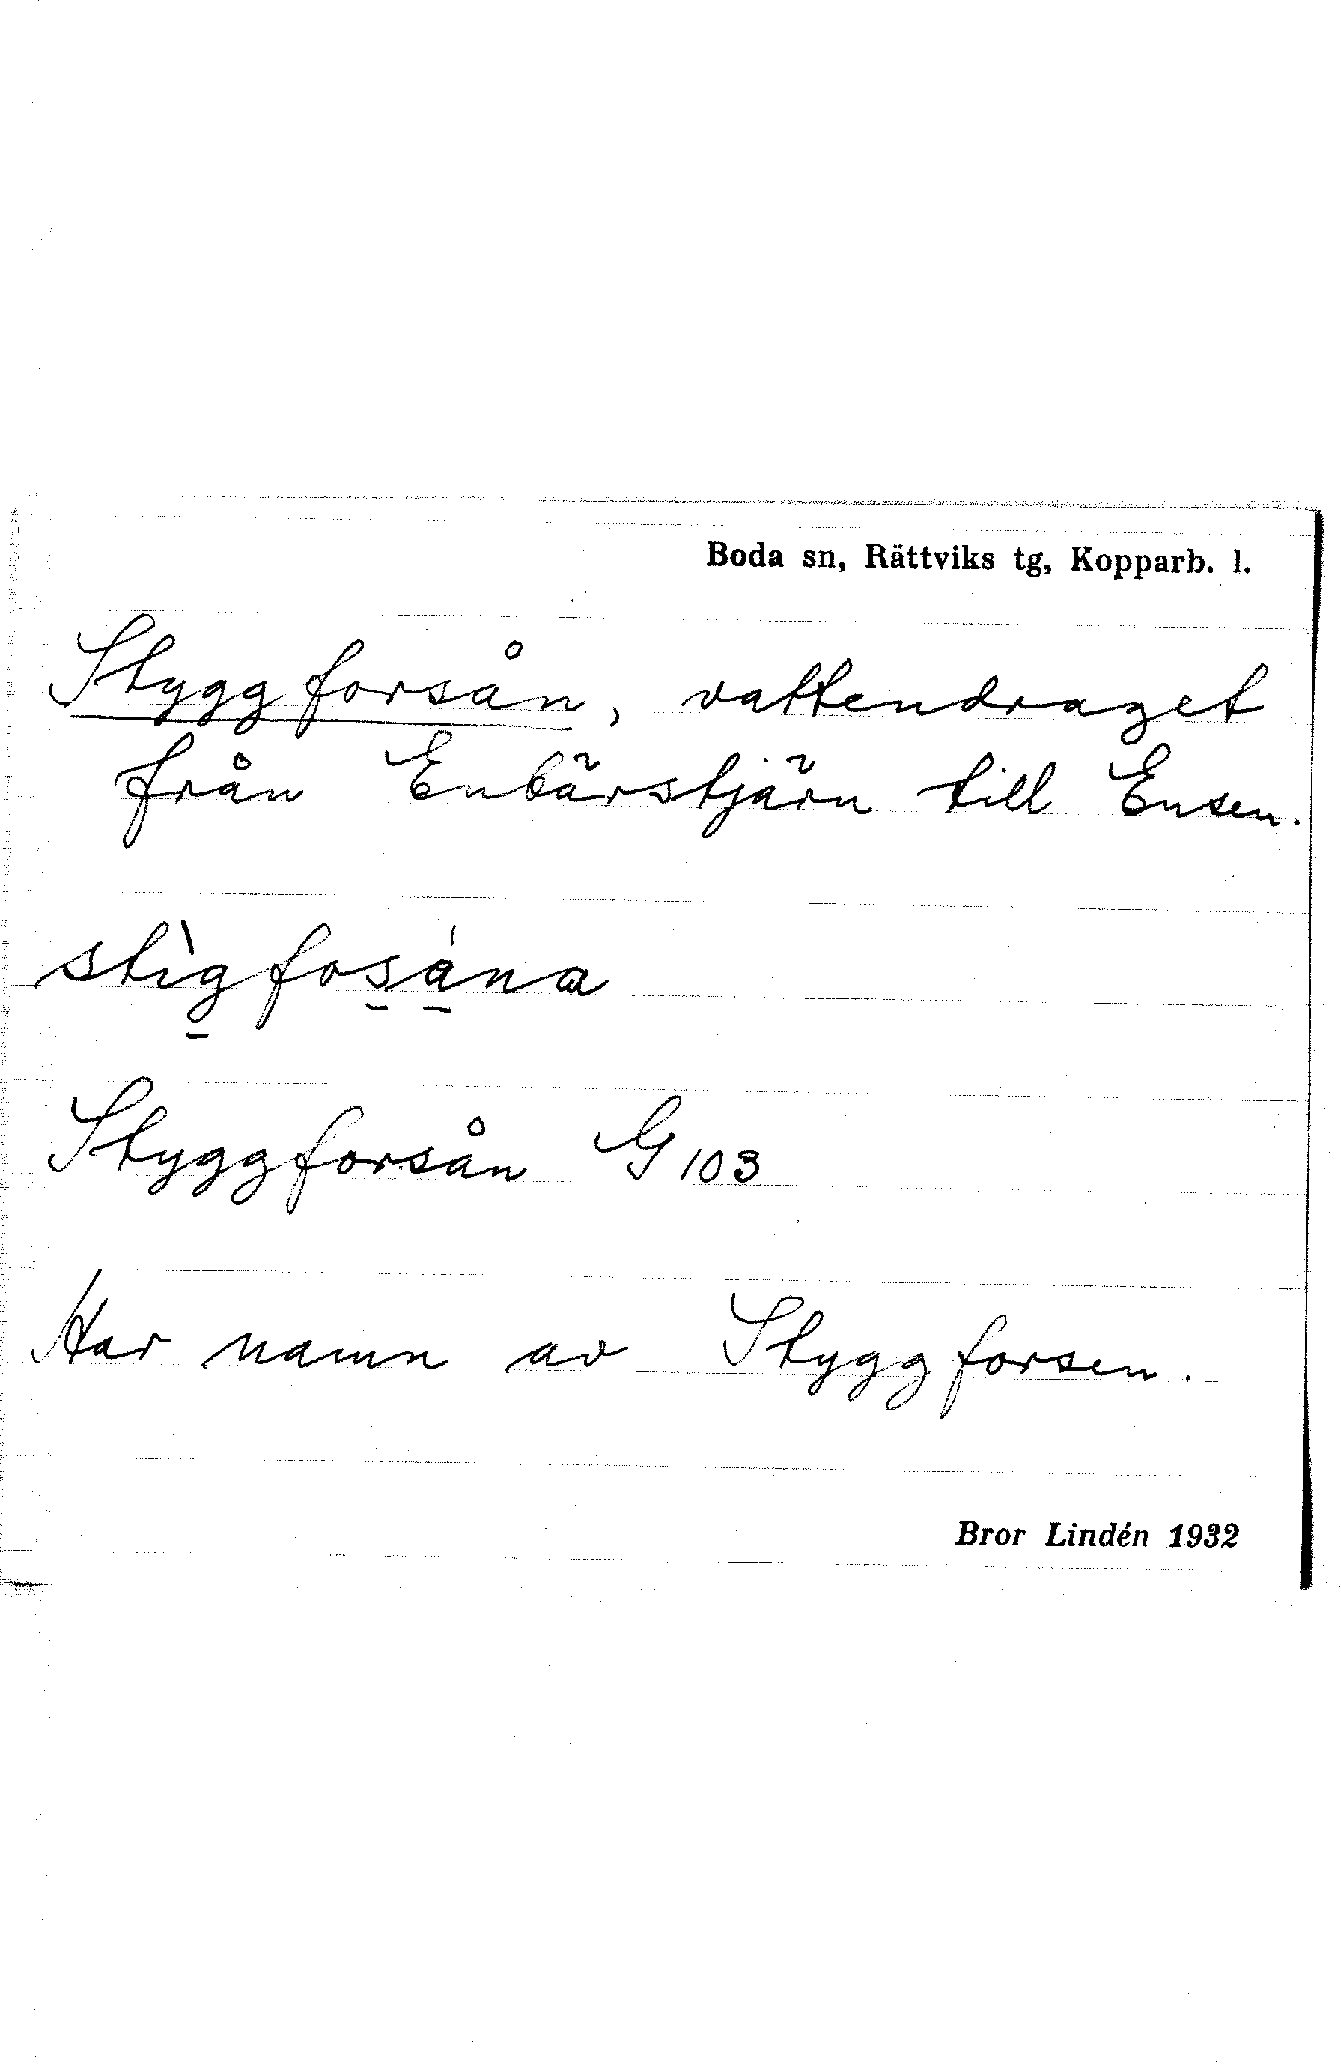 Boda sn, Rättviks tg, Kopparb. l.
Styggforsån, vattendraget
från Enbärstjärn till Ensen.
stìg̱fos̱á̱na
Styggforsån G 103
Har namn av Styggforsen.
Bror Lindén 1932